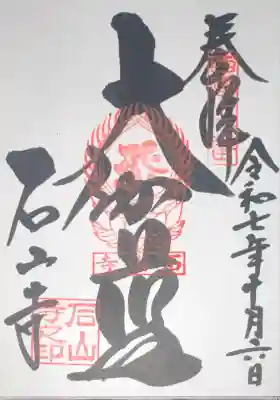 奉拝
令和七年十月六日
大伽藍
石山寺
石山
寺之
印